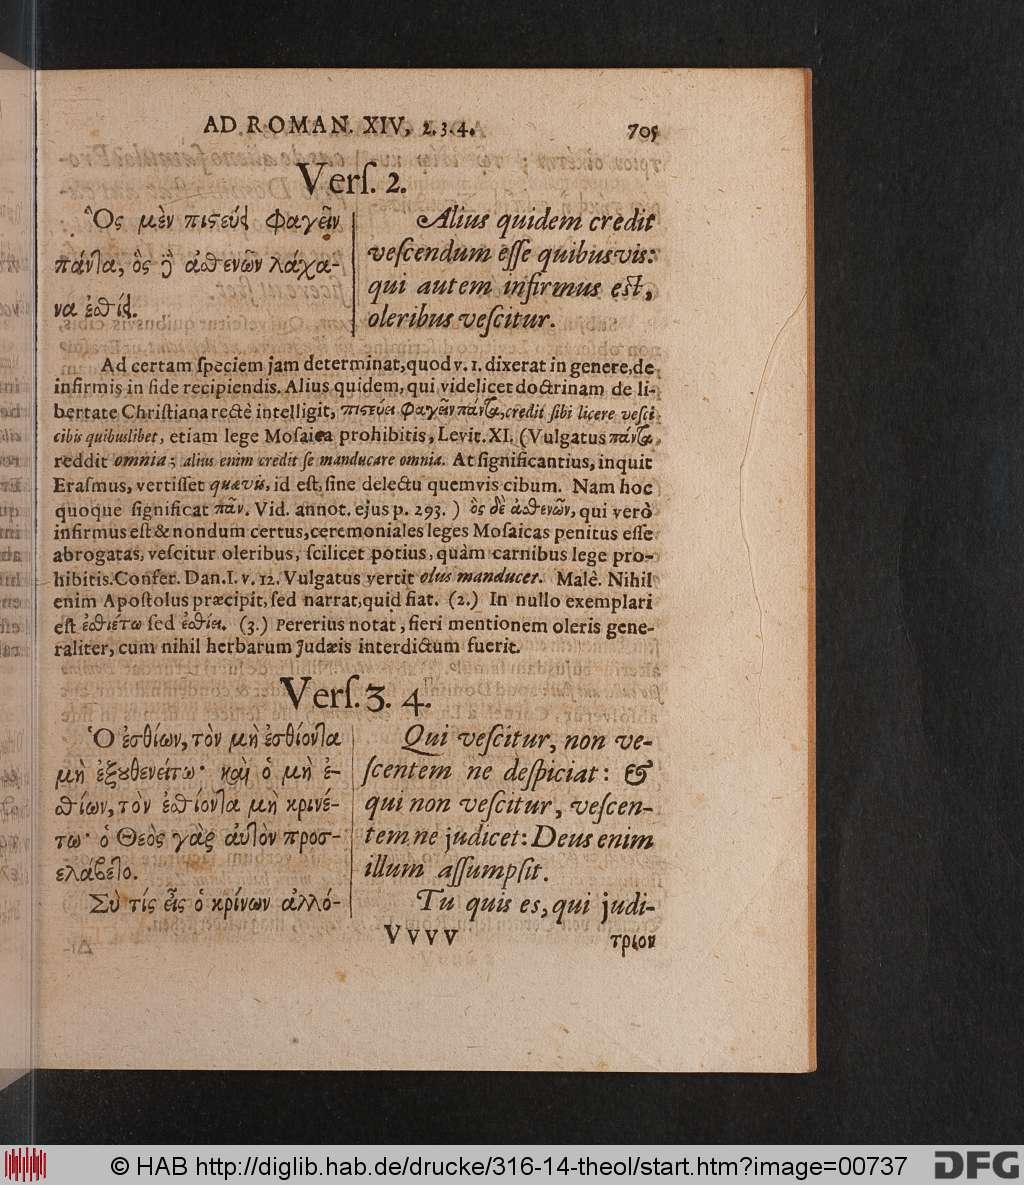 AD ROMAN. XIV, 2.3.4. 705
Verſ. 2.
Ὃς μὲν πιστεύει φαγεῖν
πάντα, ὃς δὲ ἀσθενῶν λάχα-
να ἐσθίει.
Alius quidem credit
veſcendum eſſe quibusvis:
qui autem infirmus eſt,
oleribus veſcitur.
Ad certam ſpeciem jam determinat, quod v. 1. dixerat in genere, de
infirmis in fide recipiendis. Alius quidem, qui videlicet doctrinam de li-
bertate Chriſtiana rectè intelligit, πιστεύει φαγεῖν πάντα, credit ſibi licere veſci
cibis quibuslibet, etiam lege Moſaica prohibitis, Levit. XI. (Vulgatus πάντα,
reddit omnia; alius enim credit ſe manducare omnia. At ſignificantius, inquit
Eraſmus, vertiſſet quævis, id eſt, ſine delectu quemvis cibum. Nam hoc
quoque ſignificat πᾶν. Vid. annot. ejus p. 293.) ὃς δὲ ἀσθενῶν, qui verò
infirmus eſt & nondum certus, ceremoniales leges Moſaicas penitus eſſe
abrogatas, veſcitur oleribus, ſcilicet potius, quàm carnibus lege pro-
hibitis. Confer. Dan. I. v. 12. Vulgatus vertit olus manducet. Malè. Nihil
enim Apoſtolus præcipit, ſed narrat, quid fiat. (2.) In nullo exemplari
eſt ἐσθιέτω ſed ἐσθίει. (3.) Pererius notat, fieri mentionem oleris gene-
raliter, cum nihil herbarum Judæis interdictum fuerit.
Verſ. 3. 4.
Ὁ ἐσθίων, τὸν μὴ ἐσθίοντα
μὴ ἐξουθενείτω· καὶ ὁ μὴ ἐ-
σθίων, τὸν ἐσθίοντα μὴ κρινέ-
τω· ὁ Θεὸς γὰρ αὐτὸν προσ-
ελάβετο.
Σὺ τίς εἶς ὁ κρίνων ἀλλό-
Qui veſcitur, non ve-
ſcentem ne deſpiciat: &
qui non veſcitur, veſcen-
tem ne judicet: Deus enim
illum aſſumpſit.
Tu quis es, qui judi-
Vvvv τριον
© HAB http://diglib.hab.de/drucke/316-14-theol/start.htm?image=00737 DFG